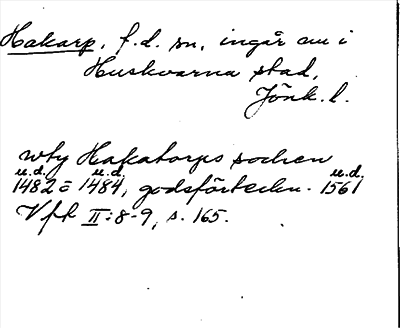 Hakarp, f.d. sn, ingår nu i
Huskvarna stad,
Jönk. l.
wty Hakatorps sochen
u.d. u.d. u.d.
1482 = 1484, godsförteckn. 1561
VFT II:8-9, s. 165.